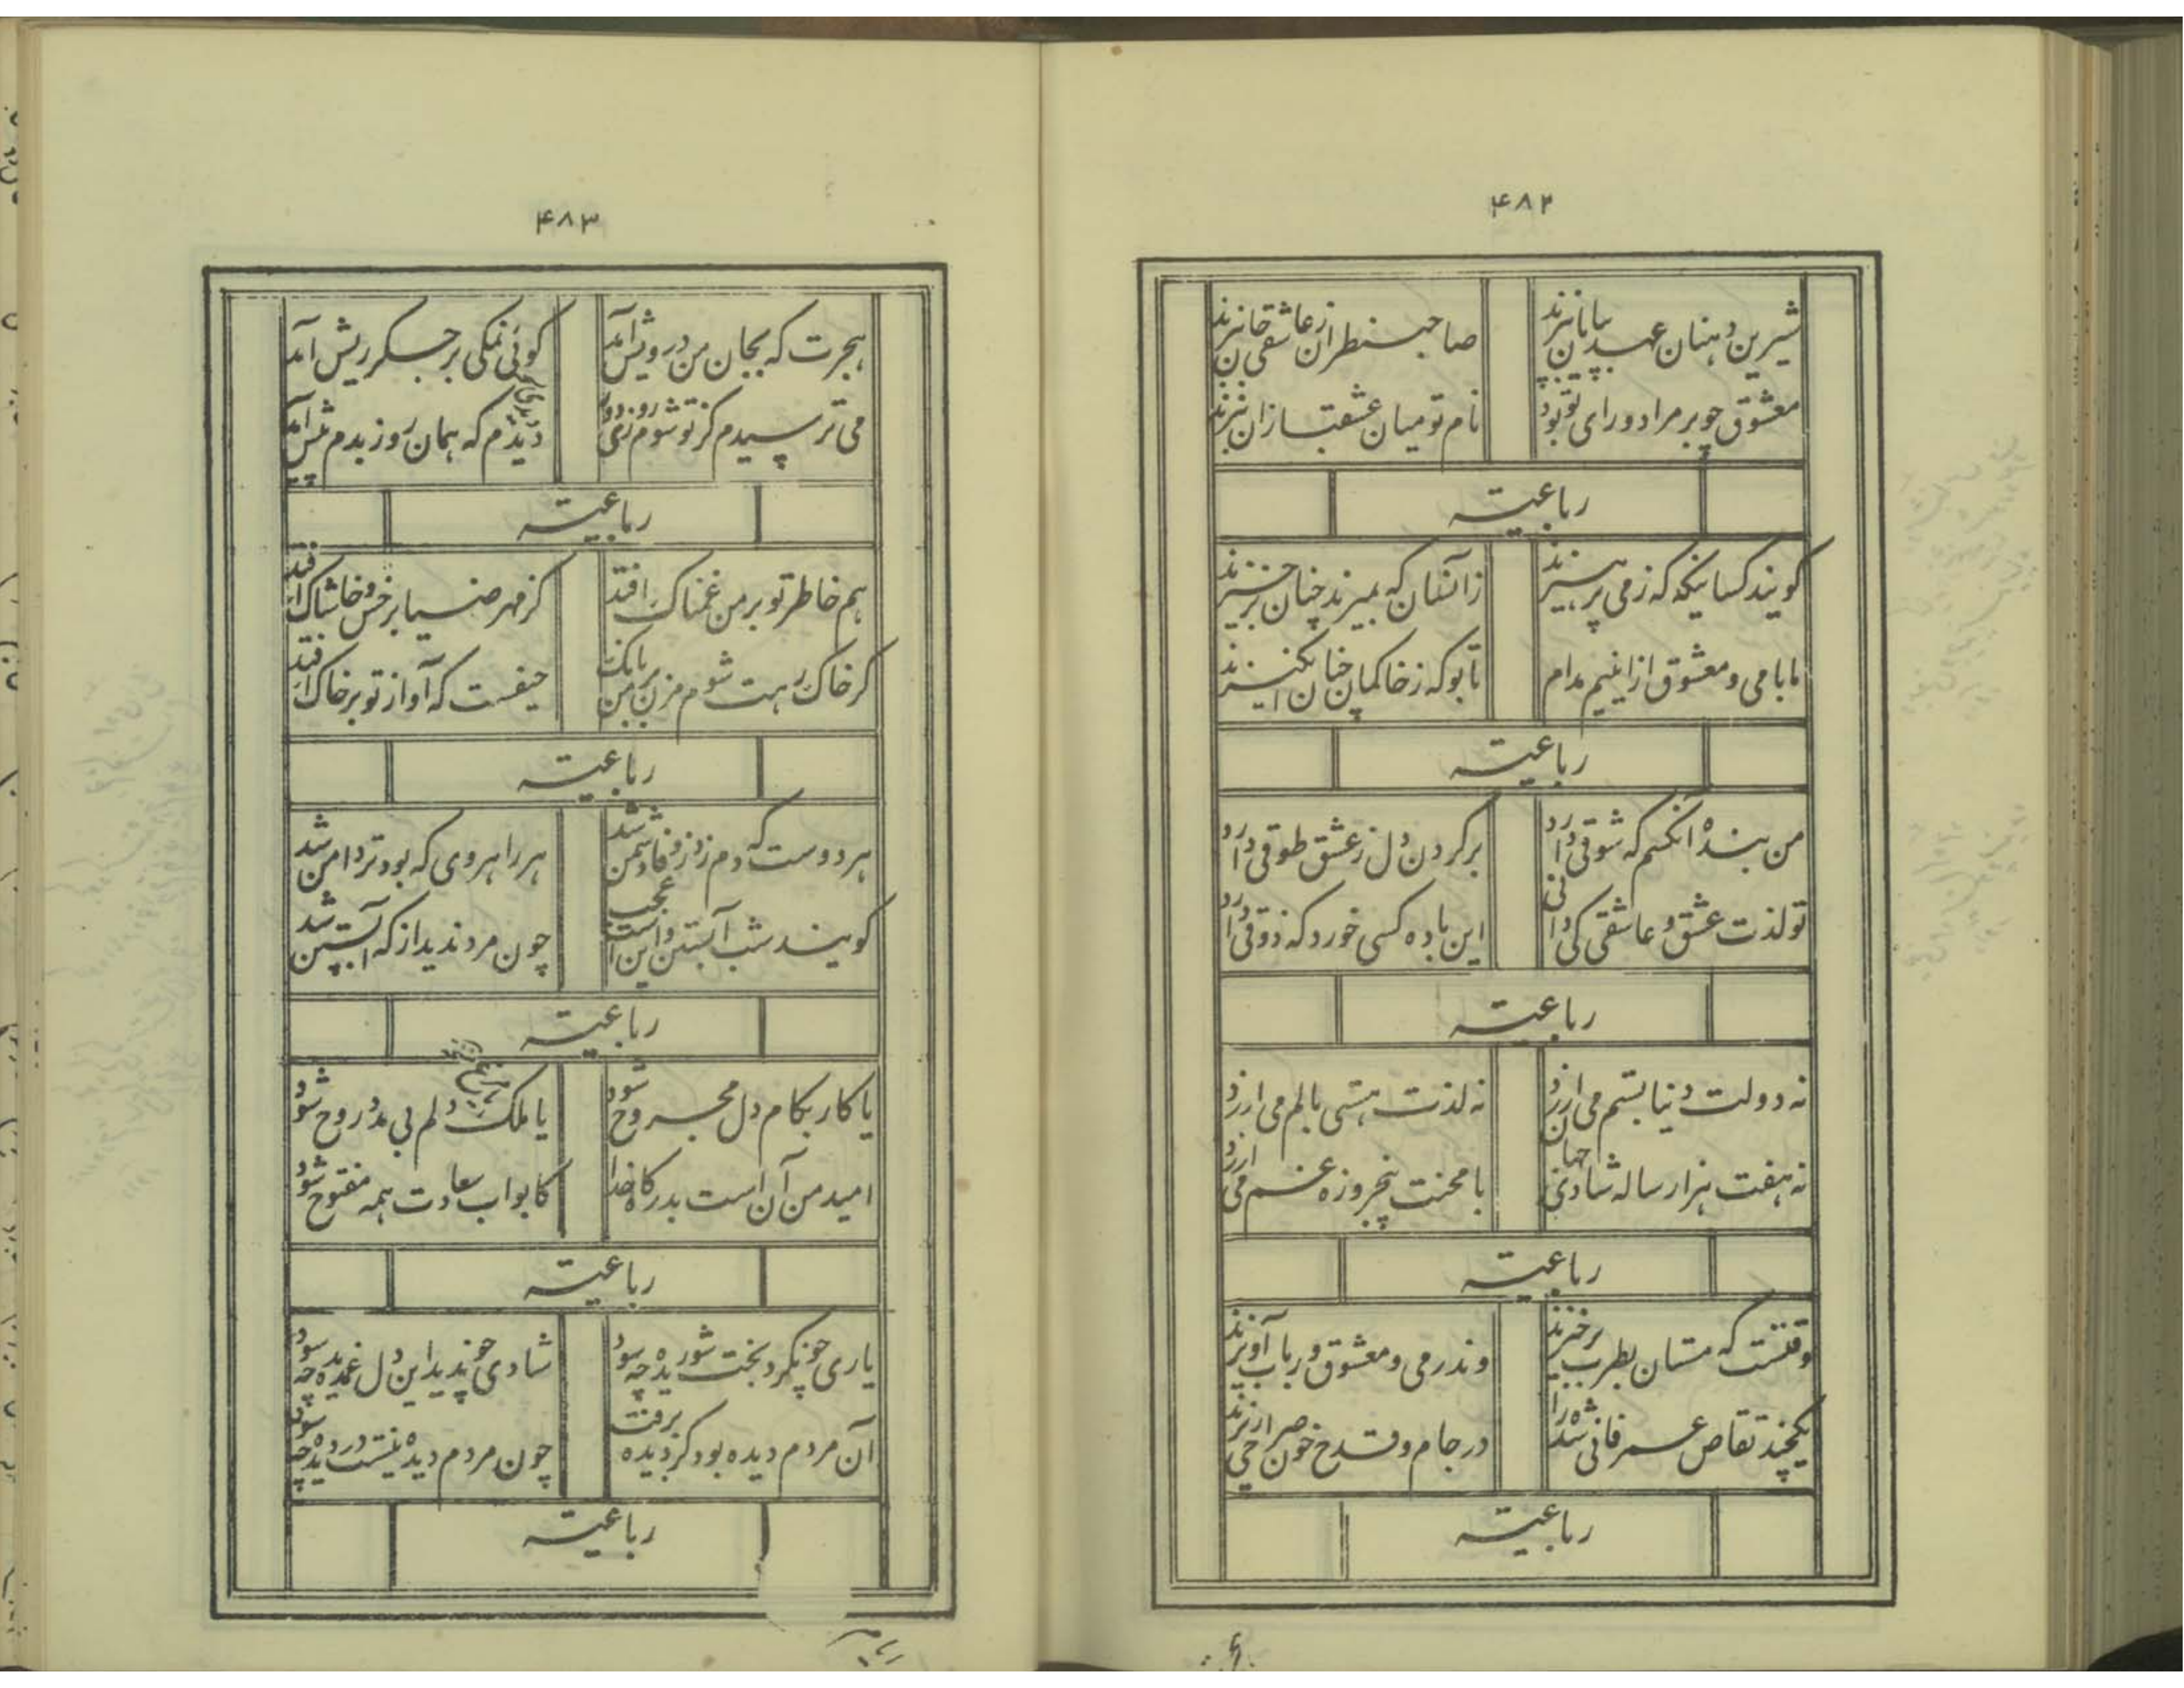 ۴۸۲
شیرین دهنان عهد بپایان نبرند صاحب نظران ز عاشقی جان نبرند
معشوق چو بر مراد و رای تو بود نام تو میان عشقبازان نبرند
رباعیته
کویند کسانیکه ز می پرهیزند زآنسان که بمیرند چنان برخیزند
ما با می و معشوق ازاینیم مدام تا بو که ز خاکمان چنان انکیزند
رباعیته
من بندهٔ آنکسم که شوقی دارد بر کردن دل ز عشق طوقی دارد
تو لذت عشق و عاشقی کی دانی این باده کسی خورد که ذوقی دارد
رباعیته
نه دولت دنیا بستم می ارزد نه لذت هستی بالم می ارزد
نه هفت هزار ساله شادی جهان با محنت پنجروزه غم می ارزد
رباعیته
وقتست که مستان بطرب برخیزند وندر می و معشوق و رباب آویزند
یکچند تقاص عمر فانی شده را در جام و قدح خون صراحی ریزند
رباعیته
۴۸۳
هجرت که بجان من درویش آمد کوئی نمکی بر جکر ریش آمد
می ترسیدم کز تو شوم روزی دور دیدم که همان روز بدم پیش آمد
رباعیته
هم خاطر تو بر من غمناک افتد کز مهر ضیا بر خس و خاشاک افتد
کر خاک رهت شوم مزن بانک بر من حیفست که آواز تو بر خاک افتد
رباعیته
هر دوست که دم زد ز وفا دشمن شد هر راهروی که بود تردامن شد
کویند شب آبستن و این است عجب چون مرد ندید از که آبستن شد
رباعیته
یا کار بکام دل مجروح شود یا ملک دلم بی مدد روح شود
امید من آن است بدرکاه خدا کابواب سعادت همه مفتوح شود
رباعیته
یاری چو نکرد بخت شوریده چه سود شادی چو ندید این دل غمدیده چه سود
آن مردم دیده بود کز دیده برفت چون مردم دیده نیست در دیده چه سود
رباعیته